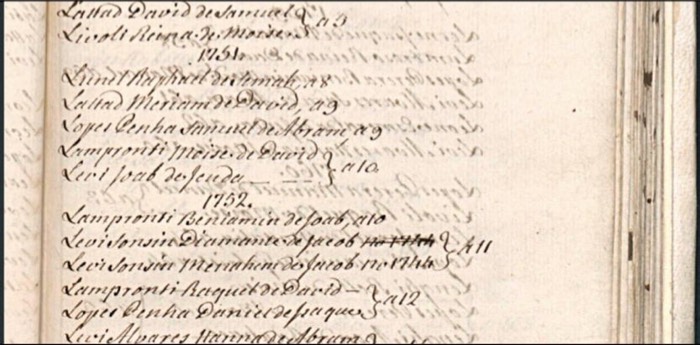 Lattad David de Samuel } a 5
Livoli Reina de Moise
1751.
Lunel Raphael de Semah, a 8
Lattad Meriam de David, a 9
Lopes Penha Samuel de Abram a 9
Lampronti Moise de David } a 10
Levi Joab de Jeuda
1752.
Lampronti Beniamin de Joab, a 10
Levi Sonsin Diamante de Jacob no 1744 } a 11
Levi Sonsin Menahem de Jacob no 1744
Lampronti Raquel de David } a 12
Lopes Penha Daniel de Isaque
Levi Alvares Hanna de Abram